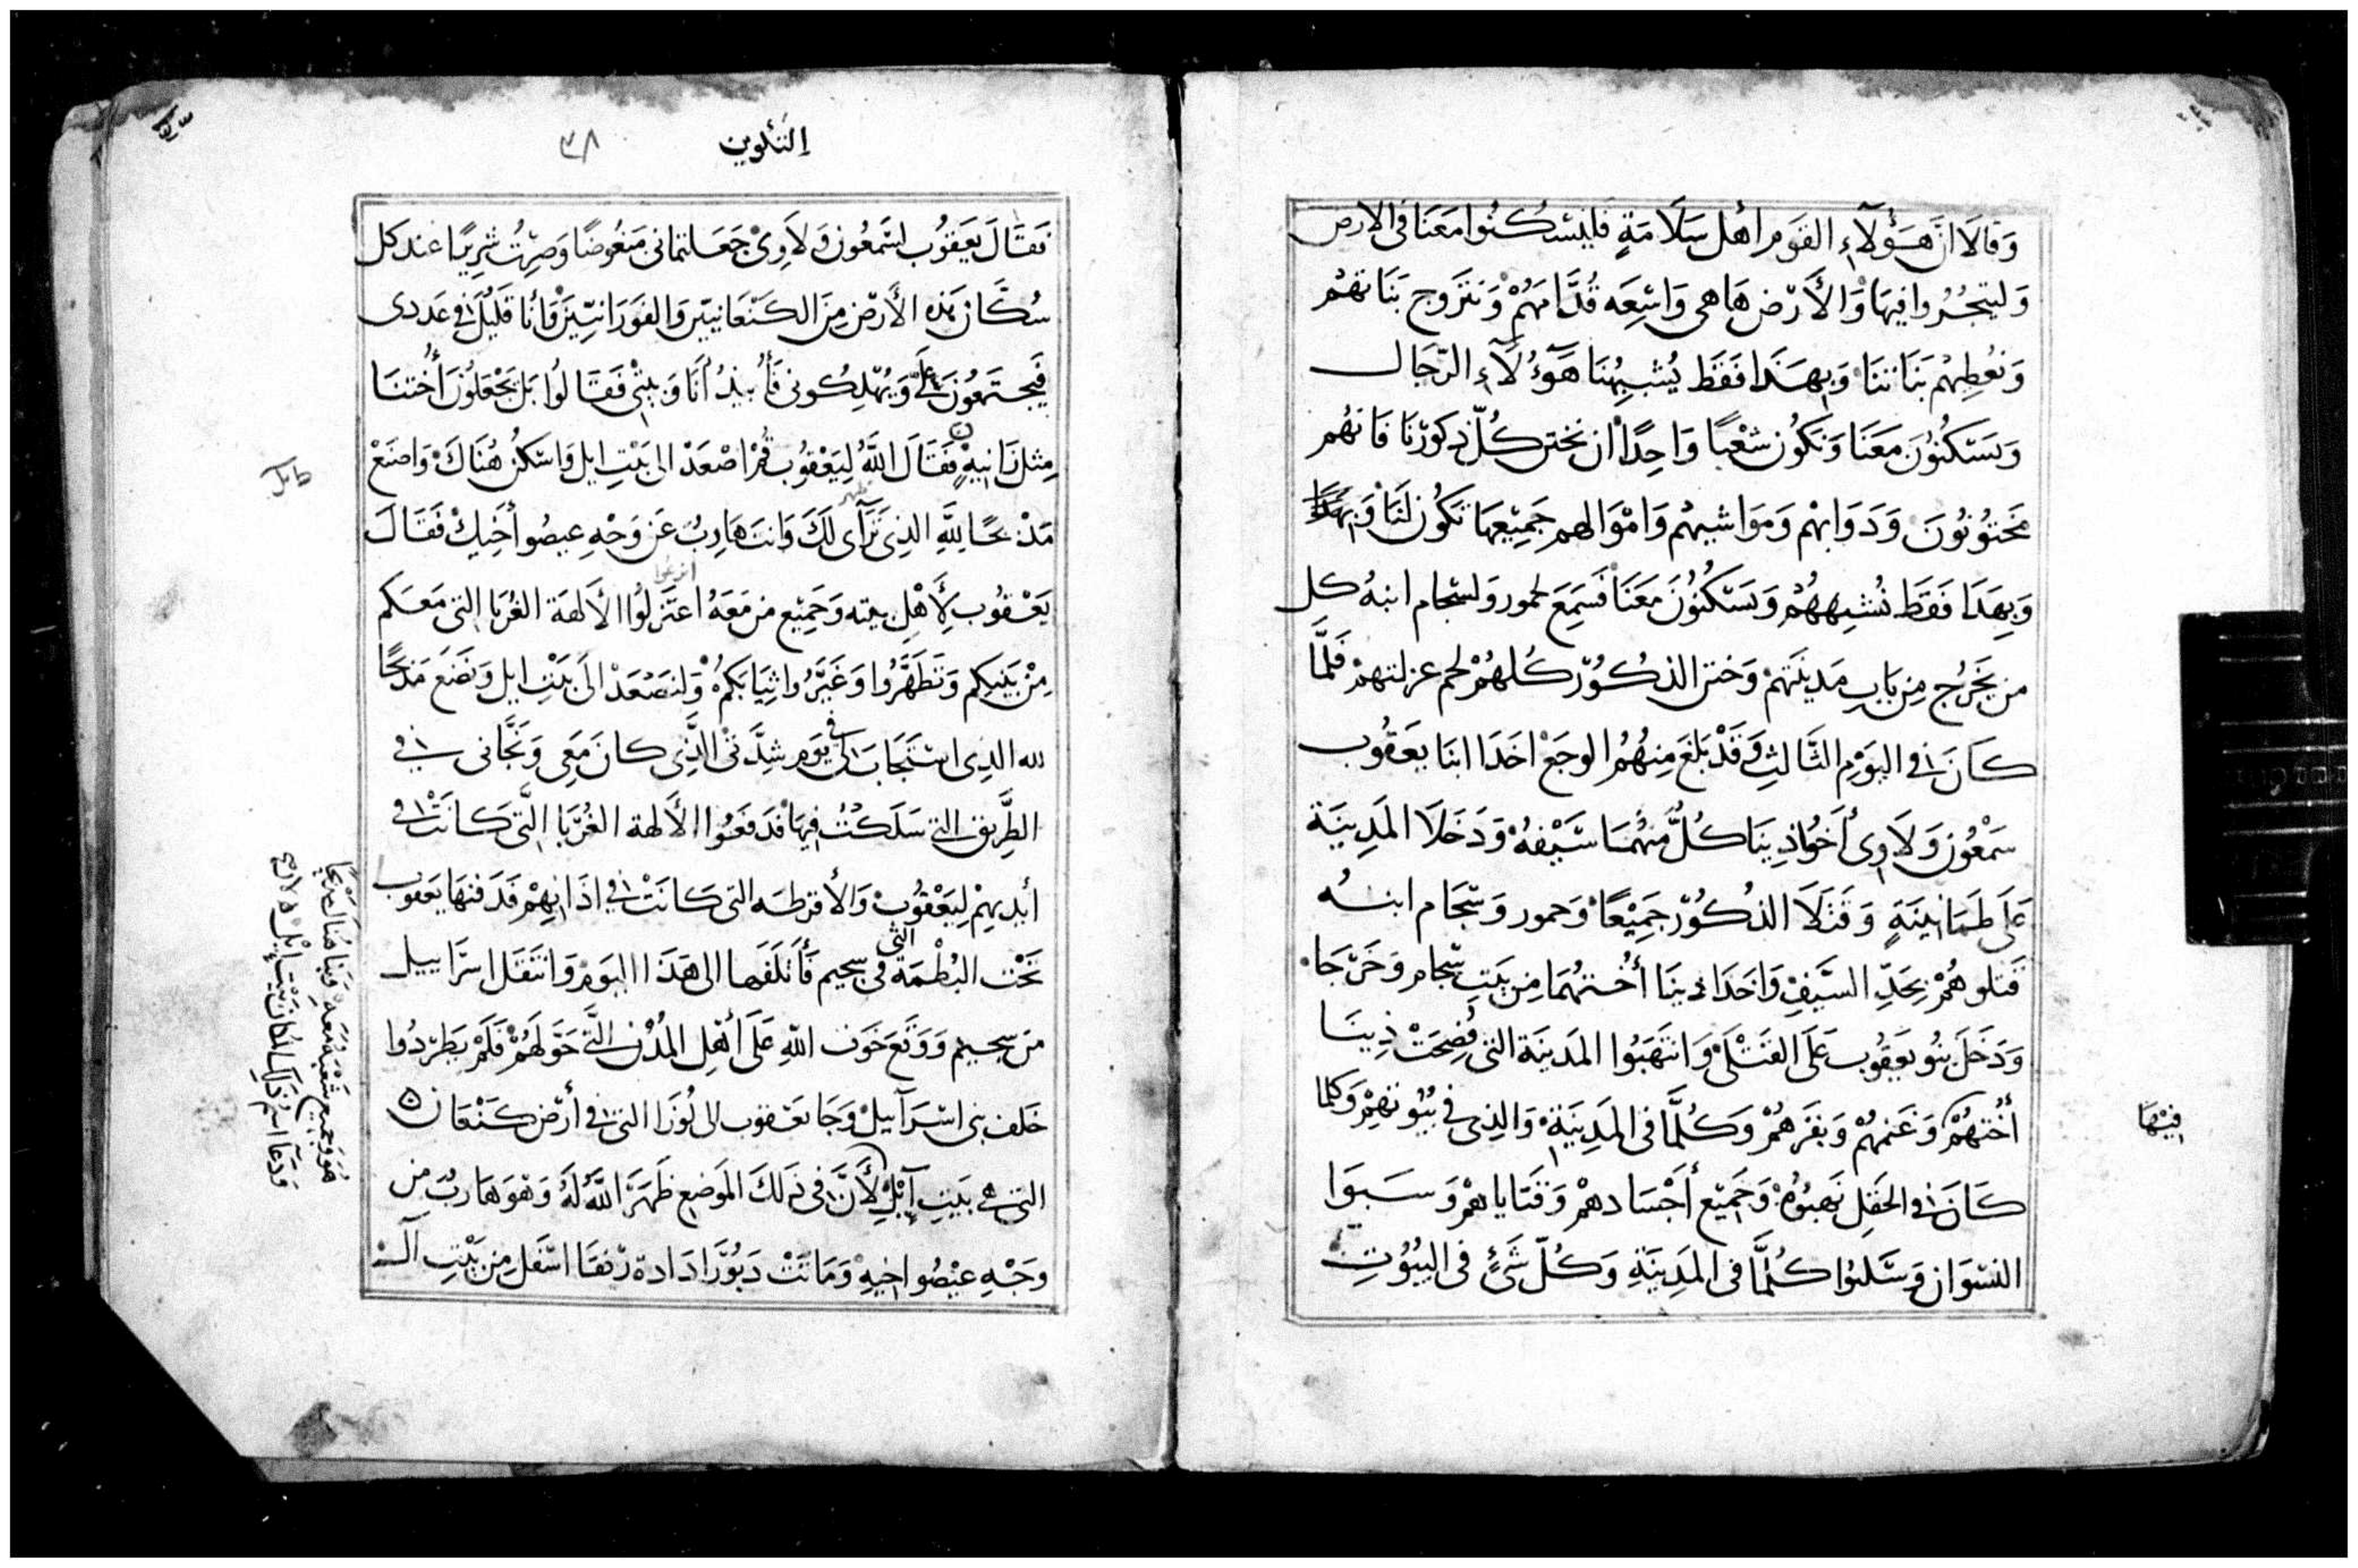 وَقالَا انَّ هَؤُلَآءِ القَوم اَهْل سَلَامَةٍ فَليَسْكُنُوا مَعَنَا فى الارض
وَليتجُرُوا فيهَا وَالأَرْض هَا هى وَاسِعَه قُدَّامهُمْ وَنتزَوج بَنَاتهُمْ
وَنُعْطِيهُمْ بَنَاتنَا وَبِهَذا فَقَط يُشبِهُنَا هَؤُلَآءِ الرّجَال
وَيَسْكُنُونَ مَعَنَا وَنَكُون شَعْبًا وَاحِدًا ان نختن كُلّ ذكورْنَا فَانهُم
مَختوُنُونَ وَدَوَابهُم وَمَوَاشيهُم وَامْوَالهم جَمِيْعِهَا تَكُون لَنَا
وَبِهَذَا فَقَط نُشبِههُمْ وَيَسْكُنُوْنَ مَعَنَا فَسَمِعَ لحمور وَلسْحَام ابنهُ كل
من يَخْرُج مِن بَابِ مَدِينَتهمْ وَختن الذكُوْر كُلهُمْ لحم عزلتهمْ فَلَمَّا
كَانَ فى اليَوْم الثَّالث وَقَدْ بَلَغَ مِنهُمُ الوجَعْ اخَذَا ابنَا يعَقُوب
سَمْعُون وَلَاوى أَخوَا ذِينَا كُلٌّ مِنْهُمَا سَيْفهُ وَدَخَلَا المَدِينَة
عَلَى طَمَانِينَةٍ وَقَتَلَا الذُكُوْر جَمِيْعًا وَحمور وَسْحَام ابنهُ
قَتلوهُمْ بِحَدِّ السَّيفِ وَاخَذَا ذينَا أُخْتهُمَا مِن بَيتِ سْحَام وَخَرَجَا
وَدَخَلَ بنُو يعَقُوب عَلَى القَتْلَى وَانتَهَبُوا المَدينَة التى فُضِحَتْ ذِينَا
أُخْتهُمْ وَغَنمهُمْ وَبقَرهُمْ وَكُلمَّا فى المَدِينَة وَالذِى فى بُيُوتهمْ وَكلما
كَانَ فى الحَقل نَهبُوهُ وَجَمِيْع أَجْسَادهمْ وَقنَايَاهمْ وَسبَوَا
النسْوَان وَسَلبُوا كُلمَّا فى المَدِينَةِ وَكُلّ شَىْءٍ فى البُيُوُتِ
فِيْهَا
٣٨
فَقَالَ يَعَقوُب لسَمعُون وَلَاوِىْ جَعَلتمانى مَبغُوضًا وَصِرتُ شرِيرًا عند كل
سُكَّان هَذه الأَرْض مِنَ الكَنْعَانيّين وَالفَورَانيّين وَأَنَا قَلْيُل فى عَددى
فَيَجتَمعُونَ عَلَىَّ وَيُهْلِكُونى فَأُبيدُ أَنَا وَبيتى فَقَالُوا بَل يَجْعَلُوْنَ أُخْتنَا
مِثل زَانيةٍ فَقَالَ اللَّهُ لِيَعْقوُب قُمْ اصْعَدْ الى بَيْتِ ايل وَاسْكنُ هُنَاكَ وَاصنَعْ
مَذْبحًا لِلَّهِ الذِى تَرَآى لَكَ وَانت هَارِبٌ عَن وَجْهِ عيصُوا أَخِيكْ فَقَالَ
يَعْقُوب لِأَهْل بيته وَجَمِيْع من مَعَهُ اعتَزلُوا الألهَة الغُربَا التى مَعَكم
انزعوا
مِنْ بَيْنِكم وَتَطَهَّرُوا وَغَيَّرُوا ثِيَابكُمْ وَلنَصْعَدْ الَى بَيْتِ ايل وَنَصْنَعَ مَذبحًا
لله الذِى اسْتَجَابَ لى فى يَوْم شِدَّتى الَّذِى كَانَ مَعِى وَنَجَّانى فى
الطَّرِيق التى سَلَكْتُ فيهَا فدَفعُوا الأَلهة الغُرَبَا الَّتى كَانَتْ فى
أيديهمْ لِيَعْقُوُبْ وَالأقرطه التى كَانَتْ فى اذَانِهِمْ فَدَفنَهَا يَعَقوب
تَحْت البُطْمَة التى فى سِحيم فَأَتلَفَهَا الى هَذا اليَوم وَانتَقَل اسرَاييل
من سِحيم وَوَقَعَ خَوف اللهِ عَلَى أَهْلِ المُدْن الَّتى حَوَّلهُمْ فَلَمْ يَطرْدُوا
خَلف بنى اسْرَآييلْ وَجَا يَعْقوب الى لُوْزا التى فى أَرْض كَنْعَان
التى هى بَيتِ آيْل لأَنَّ فى ذلكَ المَوضِع ظَهَرَ اللَّهُ لَهُ وَهوَ هَاربٌ من
وجْهِ عيْصُوا اخِيهِ وَمَاتَتْ دَبُوْرَا دَادة رْفقَا اسْفَل مِن بَيْتِ آل
هُوَ وَجَمِيع شَعْبهُ مَعَهُ وَبنا هُنَاكَ مَذْبَحًا
وَدَعَا اسْمُ ذَلِكَ المَكَان بَيْت إيْل